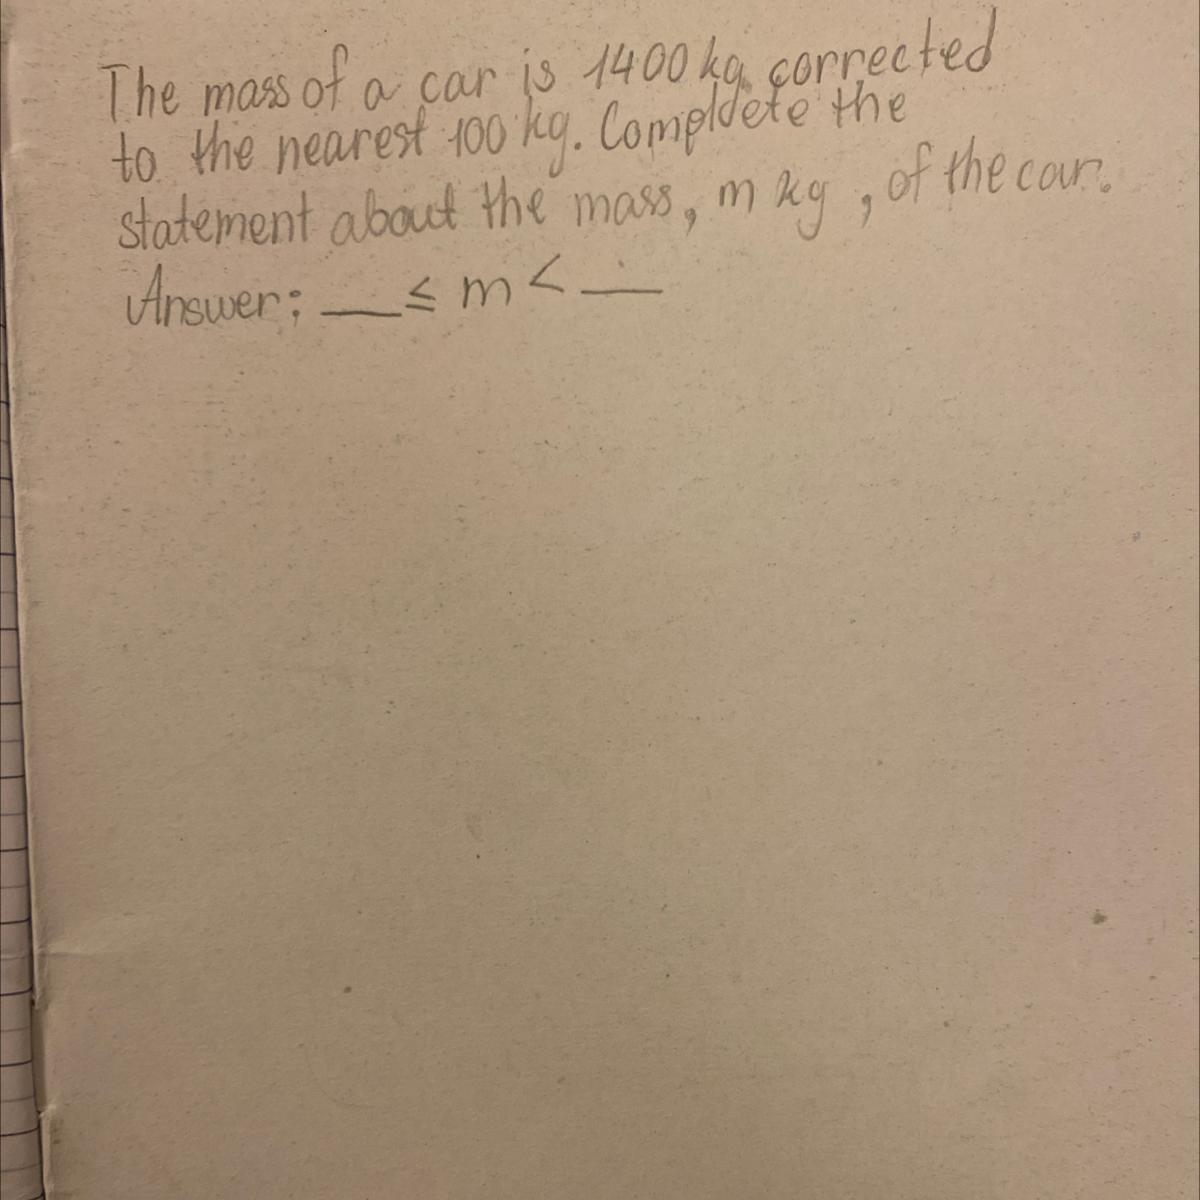 The mass of a car is 1400 kg, corrected
to the nearest 100 kg. Compldete the
statement about the mass, m kg, of the car.
Answer: __ ≤ m < __